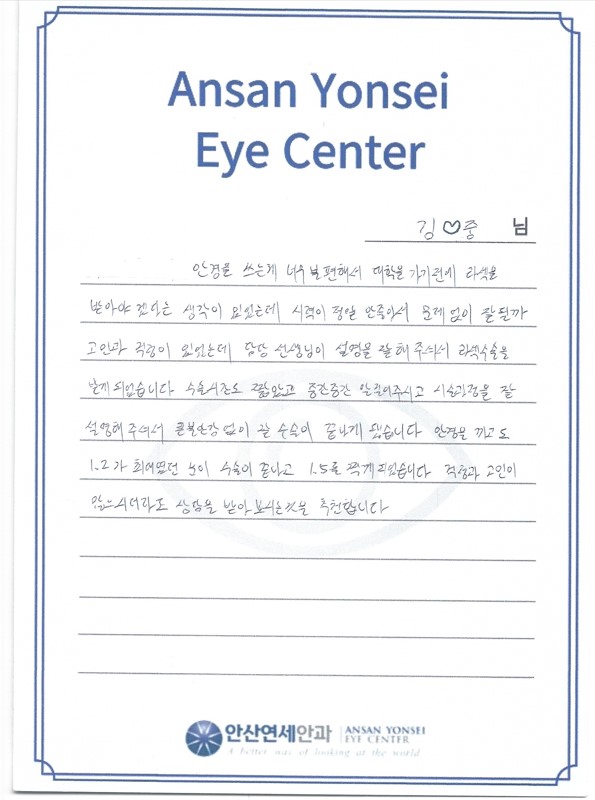 Ansan Yonsei
Eye Center
김♡중 님
안경을 쓰는게 너무 불편해서 대학을 가기전에 라섹을
받아야 겠다는 생각이 있었는데 시력이 정말 안좋아서 문제 없이 잘될까
고민과 걱정이 있었는데 담당 선생님이 설명을 잘해 주셔서 라섹수술을
받게되었습니다 수술시간도 짧았고 중간중간 알려주시고 시술과정을 잘
설명해 주셔서 큰불안감 없이 잘 수술이 끝나게 됬습니다 안경을 끼고도
1.2가 최대였던 눈이 수술이 끝나고 1.5를 찍게되었습니다 걱정과 고민이
있으시더라도 상담을 받아보시는것을 추천합니다
안산연세안과 ANSAN YONSEI
EYE CENTER
A better way of looking at the world